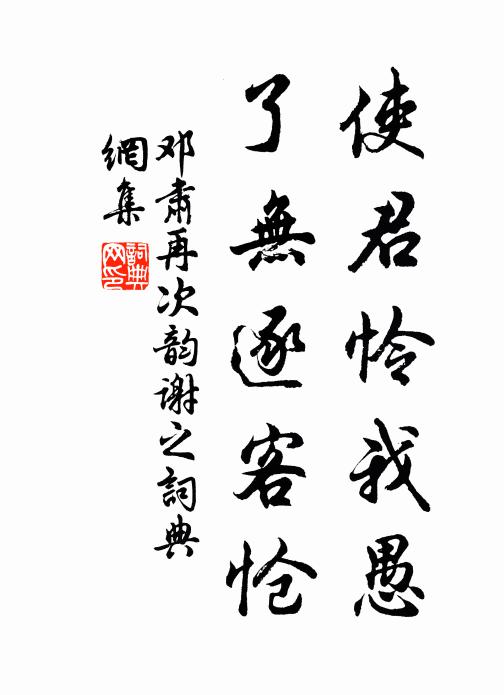 使君怜我愚
了無逐客怆
邓肃再次韵谢之詞典
網集
詞典
网印